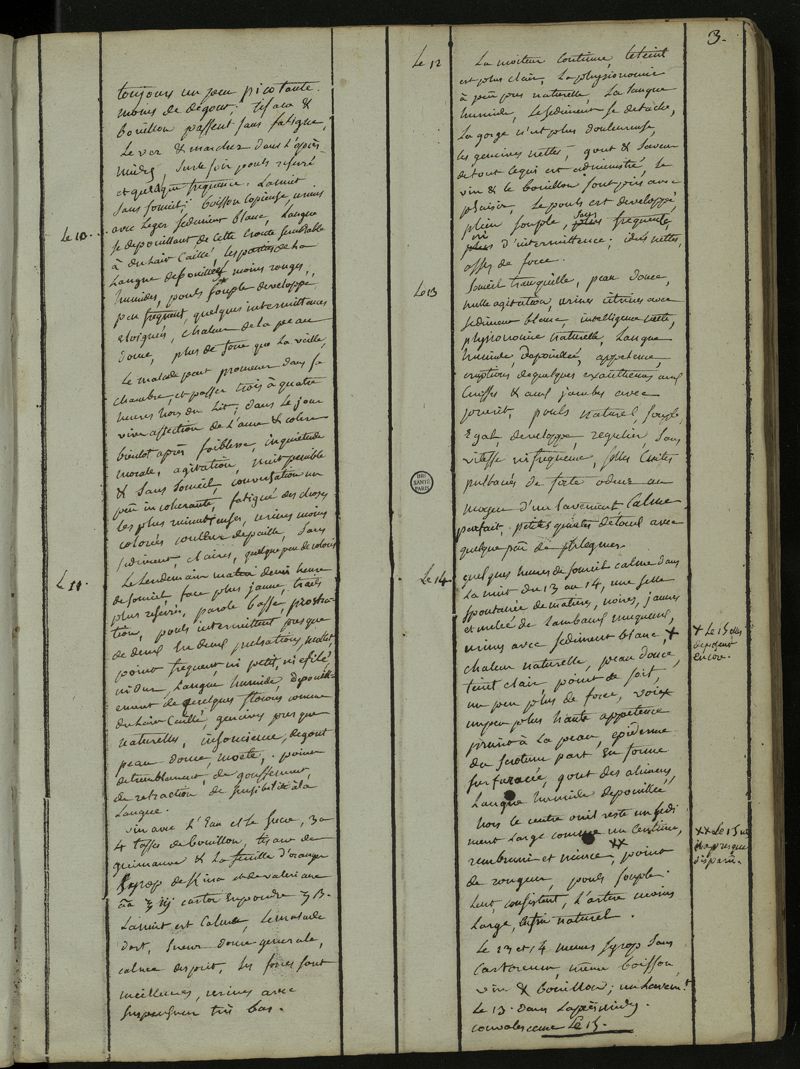 3.
toujours un peu picotante.
moins de degout; tisane &
bouillon passent sans fatigue,
Le ver & marcher dans l'après
midy, sur le soir pouls reserré
et quelque frequence. La nuit
sans someil; boisson copieuse, urines
avec leger sediment blanc, Langue
Le 10. se depouillant de cette croute semblable
à du lait Caillé, les parties de la
Langue depouillées moins rouges,
humides, pouls souple developpé,
peu frequent, quelques intermittences
eloignées, chaleur de la peau
douce, plus de force que la veille,
Le malade peut promener dans sa
chambre, et passer trois à quatre
heures hors du Lit; dans le jour
vive affection de l'ame & colere
bientot après foiblesse, inquietude
morale, agitation, nuit penible
& sans someil, conversation un
peu incoherante, fatigué des choses
les plus minutieuses, urines moins
colorées couleur de paille, sans
sediment, claires, quelque peu de coloris
Le 11. Le Lendemain matin demi heure
de someil, face plus jaune, traits
plus reserrés, parole basse, prostra-
tion, pouls intermittent presque
de deux en deux pulsations, mollet,
point frequent, ni petit, ni efilé,
ni dur, Langue humide, depouille-
ment de quelques flocons comme
du lait Caillé, gencives presque
naturelles, insouciense, degout
peau douce, moete, point
de tremblement, de gonflement,
de retraction de sensibilité à la
Langue.
vin avec l'Eau et le sucre, 3 a
4 tasses de bouillon, tisane de
guimauve & la feuille d'oranger
syrop de Kina et de valeriane
āā ℥ iij castor en poudre ʒ ß.
La nuit est Calme, le malade
dort, sueur douce generale,
calme d'esprit, les forces sont
meilleures, urines avec
suspension très bas.
Le 12 La moiteur continue, le teint
est plus clair, La physionomie
à peu près naturelle, La langue
humide, le sediment se detache,
La gorge n'est plus douloureuse,
les gencives nettes, gout & saveur
de tout ce qui est administré, le
vin & le bouillon sont pris avec
plaisir, Le pouls est developpé,
plein souple, sans frequente,
ni d'intermittence; idées nettes,
assés de force.
Le 13 Someil tranquille, peau douce,
nulle agitation, urines citrines avec
sediment blanc, intelligence nette,
physionomie naturelle, Langue
humide, depouillée, appetence,
eruptions de quelques exanthemes aux
Cuisses & aux jambes avec
prurit, pouls naturel, souple,
Egal, developpé regulier sans
vitesse ni frequence, selles Cuites
pultacés de forte odeur au
moyen d'un lavement Calme
parfait, petites quintes de toux avec
quelque peu de phlegmes.
Le 14. quelques heures de someil calme dans
La nuit du 13 au 14, une selle
spontanée de matieres, noires, jaunes
et melée de Lambeaux muqueux,
urines avec sediment blanc, +
chaleur naturelle, peau douce,
teint clair point de soif,
un peu plus de force, voix
un peu plus haute appetence
prurit à la peau, epiderme
du scrotum part en forme
furfuracée, gout des alimens,
Langue humide depouillée,
hors le centre ou il reste un sedi
ment Large comme un Centime,
rembruni et mince ++, point
de rougeur, pouls souple.
Lent, consistent, L'artere moins
Large, naturel.
Le 13 et 14 memes syrop sans
Castoreum, meme boisson,
vin & bouillon; un Lavemt
Le 13. dans l'après midy.
convalescence Le 15.
+ Le 15 elles
deposent
encore.
++ Le 15 il
a presque
disparu.
BIU
SANTÉ
PARIS